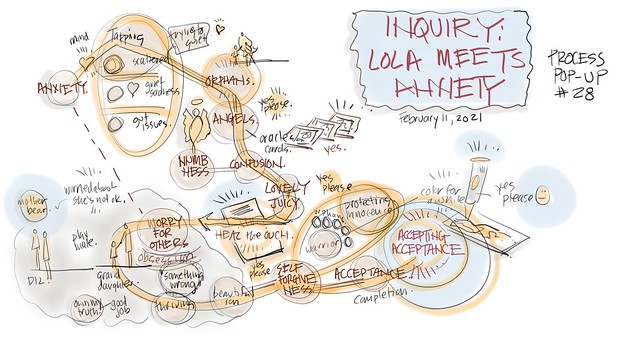 INQUIRY:
LOLA MEETS
ANXIETY
February 11, 2021
PROCESS
POP-UP
# 28
mind
Tapping
trying to
quiet
scattered
quiet
sadness
gut
issues.
ANXIETY.
ORPHANS.
yes
please.
ANGELS.
oracle
cards.
yes.
NUMB
NESS
CONFUSION.
LOVELY
JUICY
HEAR the OUCH.
yes
please
orphans
warrior
protecting
innocence
color for
awhile
yes
please
ACCEPTING
ACCEPTANCE
mother
bear.
worried about
she's not ok.
WORRY
FOR
OTHERS
OBSESSION
something
wrong
play
mate.
D12.
grand
daughter.
own my
truth!
good
job
thriving
beautiful
son
yes
please
SELF
FORGIVE
NESS
ACCEPTANCE
completion.